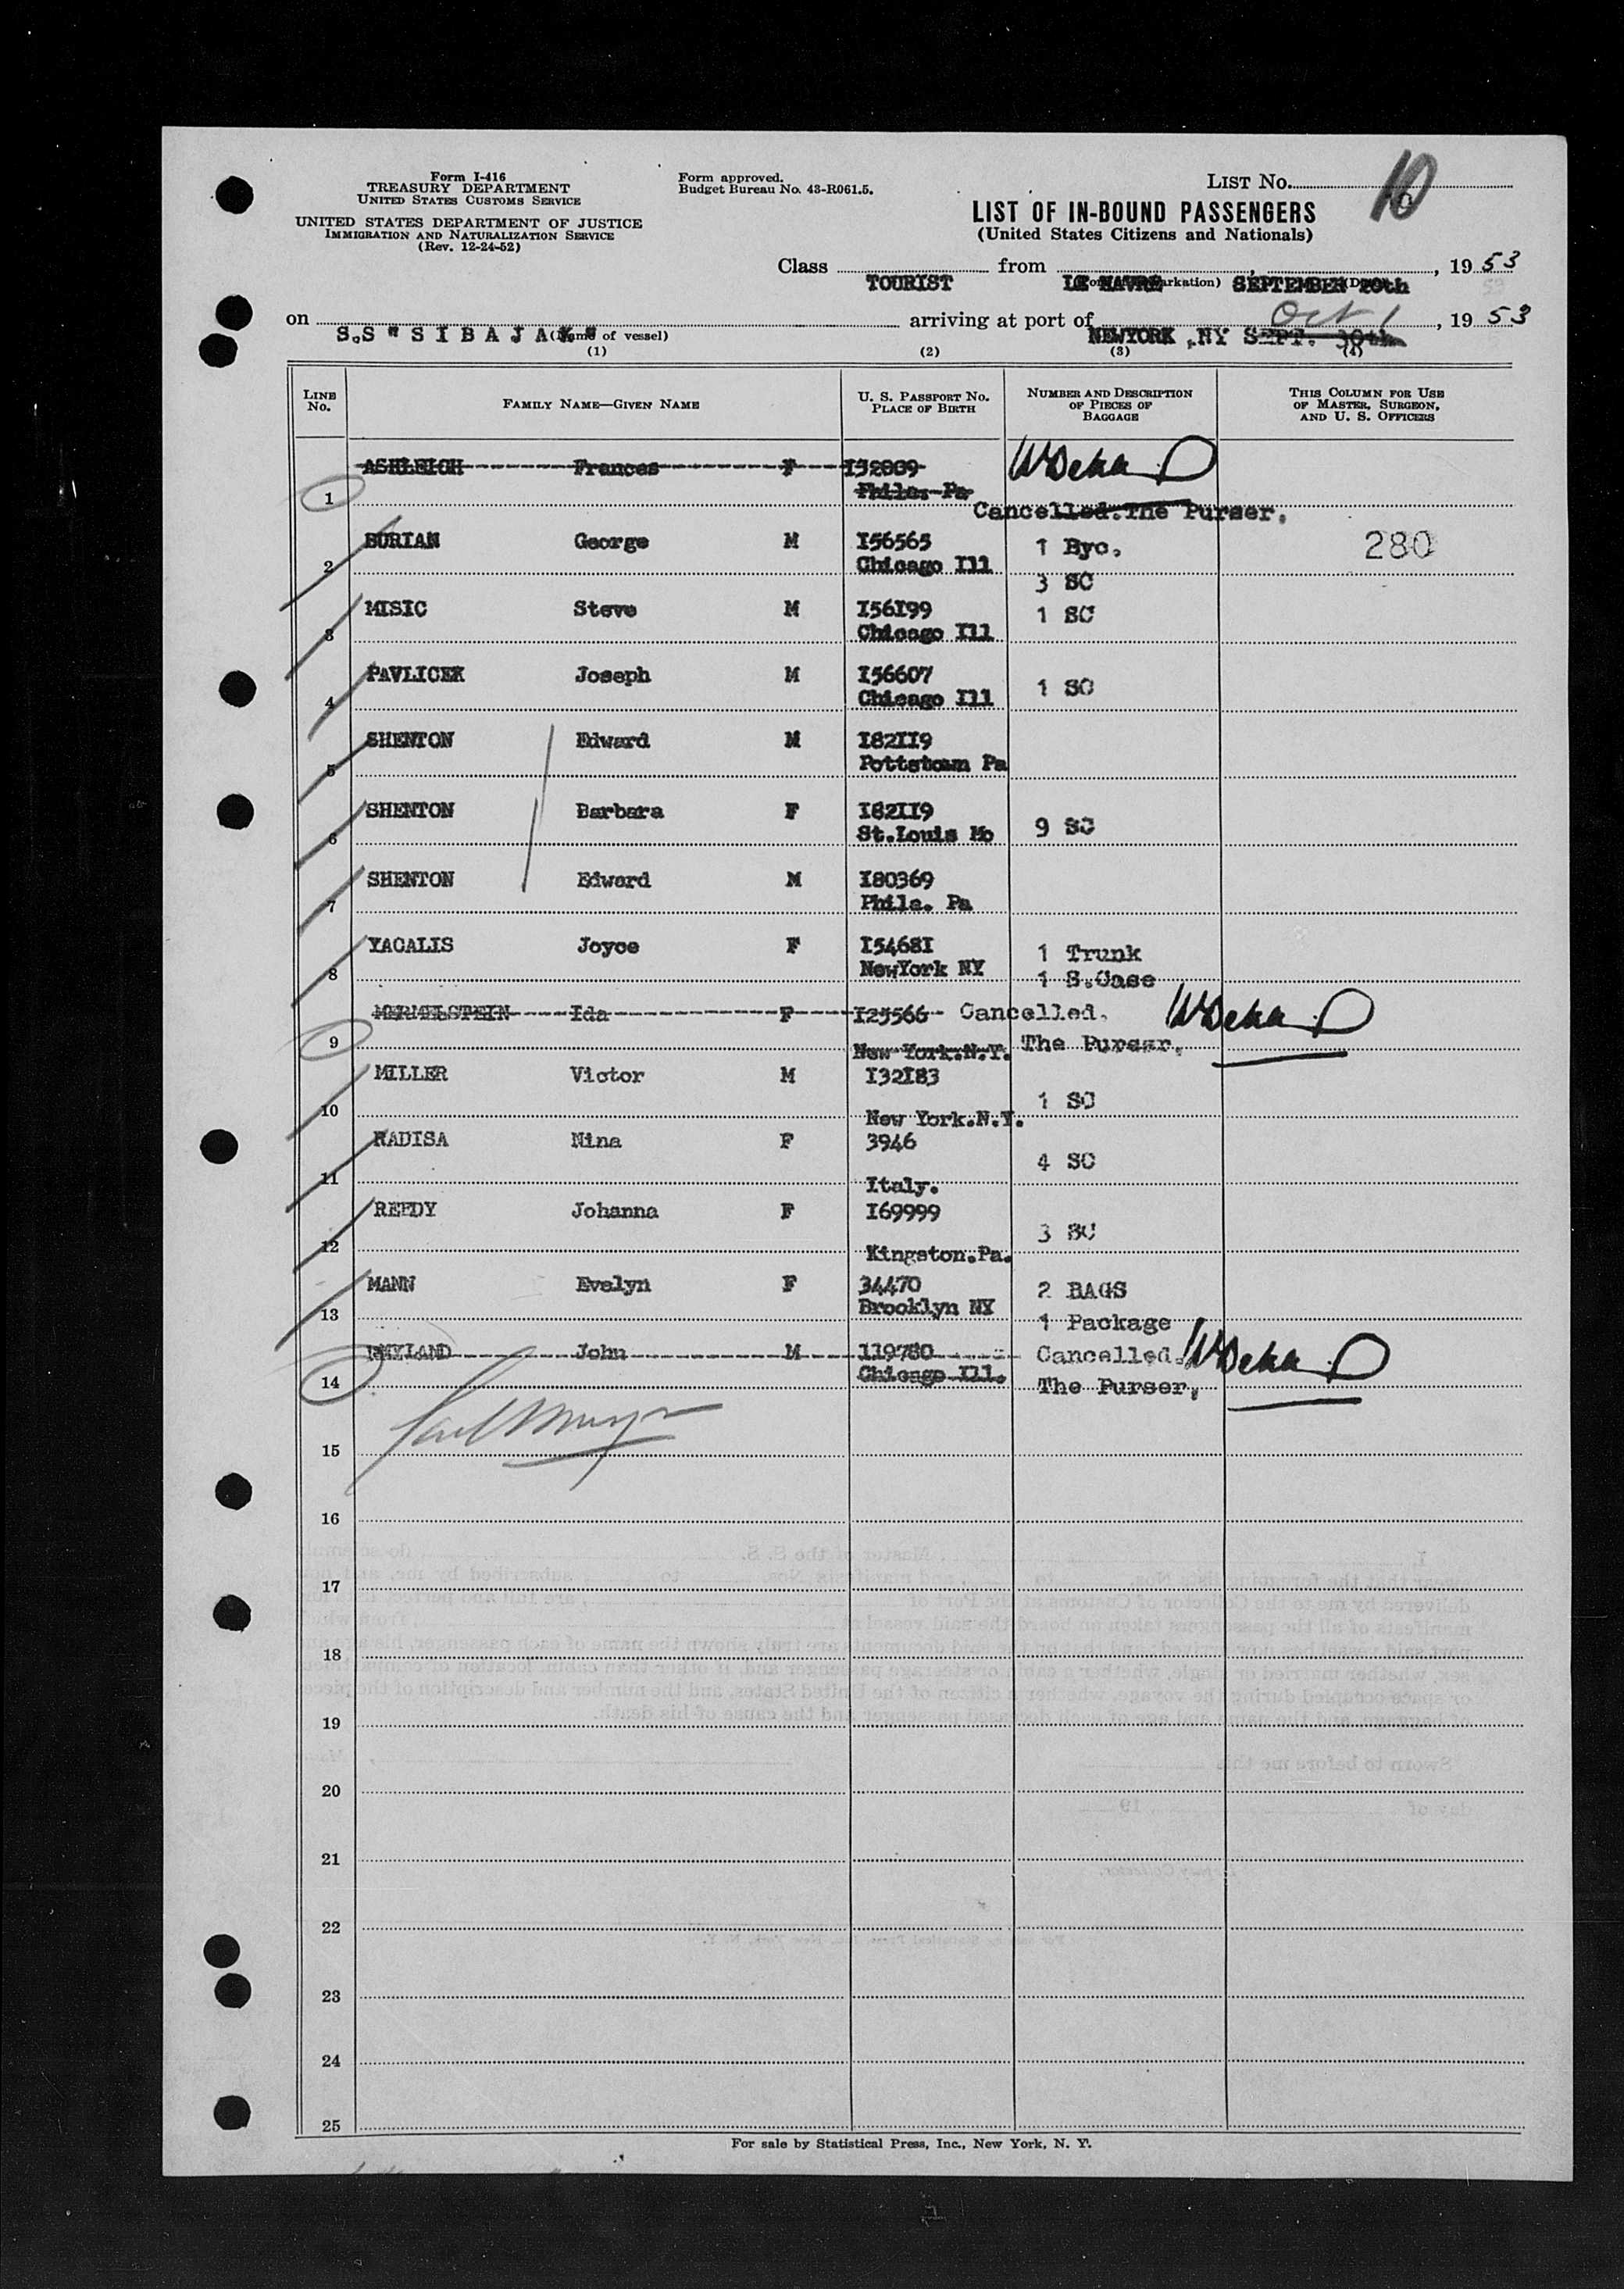 Form I-416
TREASURY DEPARTMENT
UNITED STATES CUSTOMS SERVICE
UNITED STATES DEPARTMENT OF JUSTICE
IMMIGRATION AND NATURALIZATION SERVICE
(Rev. 12-24-52)
Form approved.
Budget Bureau No. 43-R061.5.
LIST No. 10
LIST OF IN-BOUND PASSENGERS
(United States Citizens and Nationals)
Class TOURIST from LE HAVRE SEPTEMBER 20th, 1953
on S.S " S I B A J A K " (Name of vessel) arriving at port of NEWYORK ,NY SEPT. 30th Oct 1, 1953
(1) (2) (3) (4)
LINE No. FAMILY NAME—GIVEN NAME U. S. PASSPORT No. PLACE OF BIRTH NUMBER AND DESCRIPTION OF PIECES OF BAGGAGE THIS COLUMN FOR USE OF MASTER, SURGEON, AND U. S. OFFICERS
ASHLEIGH Frances F
1 Phila. Pa
Cancelled.The Purser.
BURIAN George M I56565 1 Byc. 280
2 Chicago Ill 3 SC
MISIC Steve M I56I99 1 SC
3 Chicago Ill
PAVLICEK Joseph M I56607 1 SC
4 Chicago Ill
SHENTON Edward M I82II9
5 Pottstown Pa
SHENTON Barbara F I82II9 9 SC
6 St.Louis Mo
SHENTON Edward M I80369
7 Phila. Pa
YACALIS Joyce F I5468I 1 Trunk
8 NewYork NY 1 S.Case
MERMELSTEIN Ida F I23566 Cancelled.
9 New York.N.Y. The Purser.
MILLER Victor M I32I83 1 SC
10 New York.N.Y.
RADISA Nina F 3946 4 SC
11 Italy.
REEDY Johanna F I69999 3 SC
12 Kingston.Pa.
MANN Evelyn F 34470 2 BAGS
13 Brooklyn NY 1 Package
John M 119780 Cancelled.
14 Chicago Ill. The Purser.
15
16
17
18
19
20
21
22
23
24
25
For sale by Statistical Press, Inc., New York, N. Y.